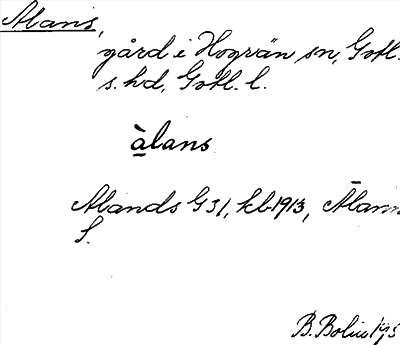 Alans,
gård i Hogrän sn, Gotl.
s. hd, Gotl. l.
àlans
Alands G 31, kb 1913,
S.
B. Bolin